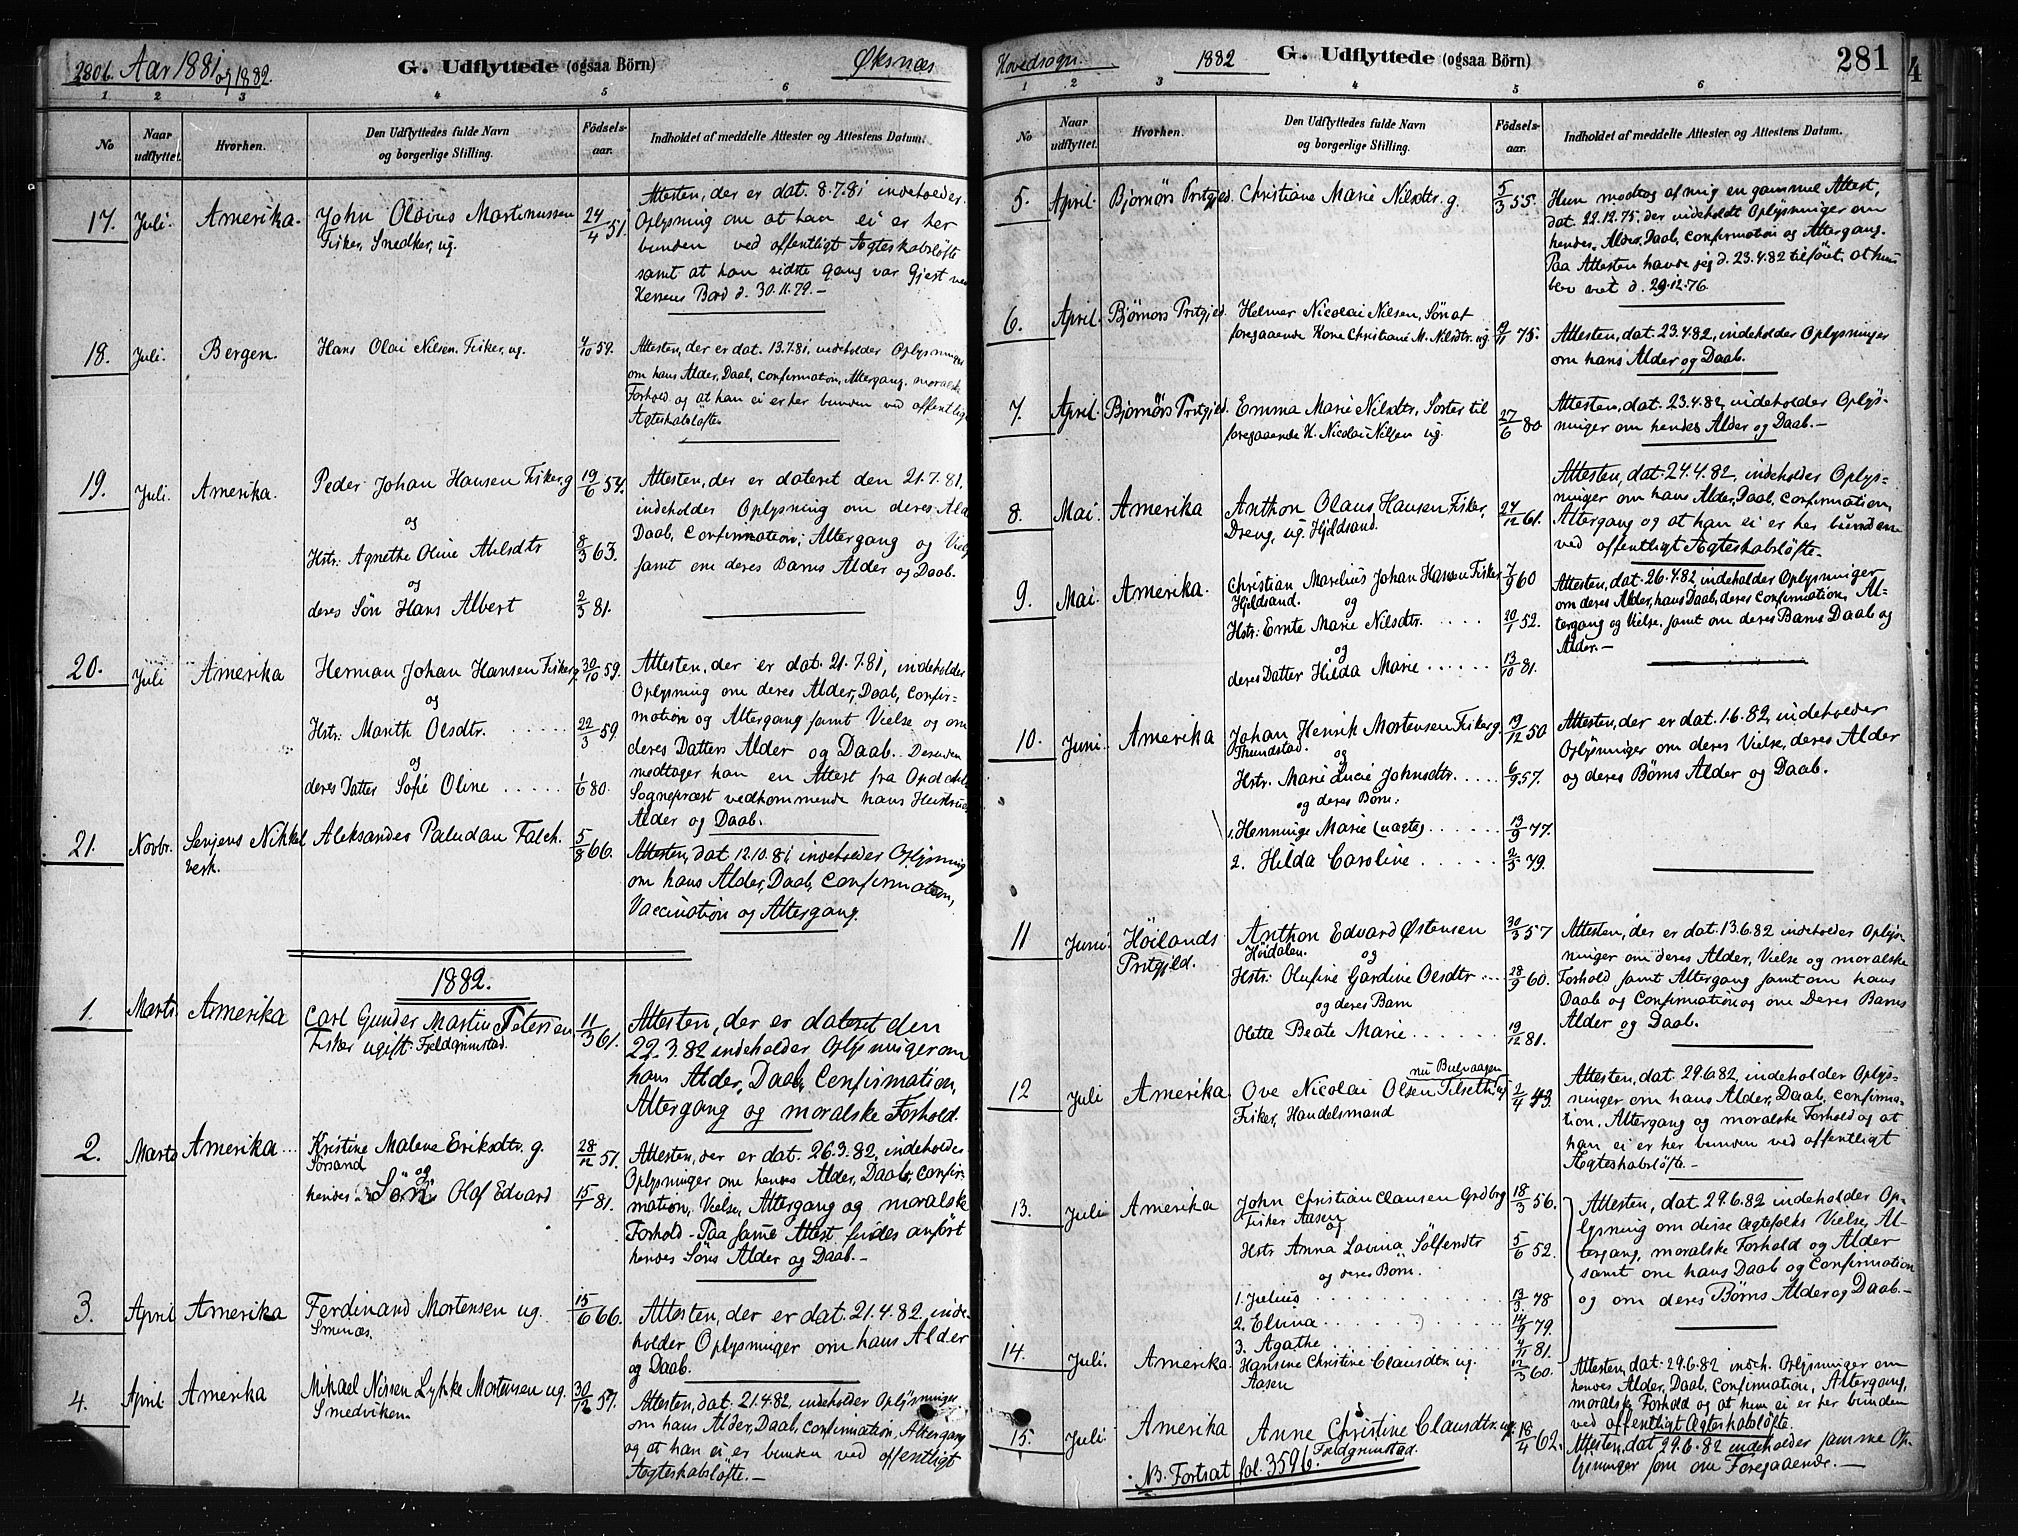 280b. Aar 1881 og 1882.
G. Udflyttede (ogsaa Börn)
Øksnæs
1 2 3 4 5 6
No
Naar udflyttet.
Hvorhen.
Den Udflyttedes fulde Navn og borgerlige Stilling.
Födsels-aar.
Indholdet af meddelte Attester og Attestens Datum.
17. Juli. Amerika. John Olavus Martinussen 24/4 51.
Fisker, Snedker, ug.
Attesten, der er dat. 8.7.81 indeholder
Oplysning om at han ei er her
bunden ved offentligt Ægteskabsløfte
samt at han sidste gang var Gjest ved
Herrens Bord d. 30.11.79. –
18. Juli. Bergen. Hans Olai Nilsen. Fisker, ug. 4/10 59.
Attesten, der er dat. 13.7.81, indeholder Oplysninger
om hans Alder, Daab, Confirmation, Altergang, moralske
Forhold og at han ei er her bunden ved offentligt
Ægteskabsløfte.
19. Juli. Amerika. Peder Johan Hansen Fisker, g 19/6 54.
og
Hstr: Agnethe Oline Abelsdtr 8/3 63.
og
deres Søn Hans Albert 2/3 81.
Attesten, der er dateret den 21.7.81,
indeholder Oplysning om deres Alder
Daab, Confirmation, Altergang og Vielse
samt om deres Barns Alder og Daab.
20. Juli Amerika Herman Johan Hansen Fisker g. 30/10 59.
og
Hstr: Marith Olsdtr. 22/3 59
og
deres Datter Sofie Oline 1/6 80.
Attesten, der er dat. 21.7.81, indeholder
Oplysning om deres Alder, Daab, Confir-
mation og Altergang samt Vielse og om
deres Datters Alder og Daab. Desuden
medtager han en Attest fra Opdals
Sognepræst vedkommende hans Hustrues
Alder og Daab.
21. Novbr. Senjens Nikkel verk. Aleksander Paludan Falch. 5/8 66.
Attesten, dat 12.10.81 indeholder Oplysning
om hans Alder, Daab, Confirmation,
Vaccination og Altergang.
1882.
1. Marts Amerika Carl Gunder Martin Petersen 11/3 61.
Fisker ugift. Fjeldgrimstad.
Attesten, der er dateret den
22.3.82 indeholder Oplysninger om
hans Alder, Daab, Confirmation,
Altergang og moralske Forhold.
2. Marts Amerika Kristine Malene Eriksdtr. g. 28/12 51.
Sørsand
og
hendes Søn Olaf Edvard 15/1 81.
Attesten, der er dat. 26.3.82, indeholder
Oplysninger om hendes Alder, Daab, Confir-
mation, Vielse, Altergang og moralske
Forhold – Paa samme Attest findes anført
hendes Søns Alder og Daab –
3. April Amerika Ferdinand Mortensen ug. 15/6 66.
Smines.
Attesten, der er dat. 21.4.82, inde-
holder Oplysninger om hans Alder
og Daab.
4. April Amerika Mikael Nissen Lykke Mortensen ug. 30/12 57.
Smedviken.
Attesten, dat. 21.4.82, indeholder Oplysninger
om hans Alder, Daab, Confirmation, Altergang
og at han ei er bunden ved offentligt
Ægteskabsløfte. –
Hovedsogn.
1882
G. Udflyttede (ogsaa Börn)
281
4
1 2 3 4 5 6
No
Naar udflyttet.
Hvorhen.
Den Udflyttedes fulde Navn og borgerlige Stilling.
Födsels-aar.
Indholdet af meddelte Attester og Attestens Datum.
5. April. Bjørnørs Prstgjeld. Christiane Marie Nilsdtr. g. 5/3 55.
Hun modtog af mig en gammel Attest,
dat. 22.12.75, der indeholdt Oplysninger om
hendes Alder, Daab, Confirmation og Altergang.
Paa Attesten havde jeg d. 23.4.82 tilføiet, at hun
blev viet d. 29.12.76.
6. April. Bjørnørs Prstgjed. Helmer Nicolai Nilsen, Søn af 75.
foregaaende Kone Christiane M. Nilsdtr. ug.
Attesten, dat. 23.4.82, indeholder Oplysninger
om hans Alder og Daab.
7. April Bjørnørs Prstgjed. Emma Marie Nilsdtr, Søster til 27/6 80
foregaaende H. Nicolai Nilsen ug.
Attesten, dat. 23.4.82, indeholder Oplys-
ninger om hendes Alder og Daab. –
8. Mai. Amerika Anthon Olaus Hansen Fisker, 24/12 61.
Dreng, ug. Hjldsand.
Attesten, dat. 24.4.82, indeholder Oplys-
ninger om hans Alder, Daab, Confirmation,
Altergang og at han ei er her bunden
ved offentligt Ægteskabsløfte.
9. Mai. Amerika. Christian Marelius Johan Hansen Fisker 7/9 60
Hjldsand. og
Hstr: Ernte Marie Nilsdtr. 20/1 52.
og
deres Datter Hilda Marie 13/10 81.
Attesten, dat. 26.4.82, indeholder Oplysninger
om deres Alder, hans Daab, deres Confirmation, Al-
tergang og Vielse, samt om deres Barns Daab og
Alder. –
10. Juni. Amerika Johan Henrik Mortensen Fisker g. 19/12 50
Thundstad. og
Hstr. Marie Lucie Johnsdtr. 6/9 57.
og deres Børn:
1. Henninge Marie (uægte) 13/9 77.
2. Hilda Caroline 2/5 79.
Attesten, der er dat. 1.6.82, indeholder
Oplysninger om deres Vielse, deres Alder
og deres Børns Alder og Daab.
11 Juni. Höilands Prstgjeld. Anthon Edvard Østensen 30/3 57
Høidalen. og
Hstr: Olufine Gardine Olsdtr 28/9 60.
og deres Barn
Olette Beate Marie 19/12 81.
Attesten, der er dat. 13.6.82 indeholder Oplys-
ninger om deres Alder, Vielse og moralske
Forhold samt Altergang samt om hans
Daab og Confirmation og om Deres Barns
Alder og Daab.
12 Juli Amerika. Ove Nicolai Olsen Tilseth ug 2/4 43.
nu Bulvaagen
Fisker, Handelsmand
Attesten, dat. 29.6.82, indeholder Oplys-
ninger om hans Alder, Daab, Confirma-
tion, Altergang og moralske Forhold og at
han ei er her bunden ved offentligt
Ægteskabsløfte. –
13. Juli Amerika John Christian Clausen Grdbrg 18/3 56.
Fisker Aasen
og
Hstr Anna Lovina Sølfensdtr 5/6 52.
og deres Børn.
1. Julius 13/3 78
2. Elvina 14/9 79.
3. Agathe 4/11 81.
Attesten, dat. 29.6.82 indeholder Op-
lysning om disse Ægtefolks Vielse, Al-
tergang, moralske Forhold og Alder
samt om hans Daab og Confirmation
og om deres Børns Alder og Daab. –
14. Juli. Amerika. Hansine Christine Clausdtr. ug. 12/3 60.
Aasen
Attesten, dat. 29.6.82 indeh. Oplysninger om
hendes Alder, Daab, Confirmation, Altergang,
moralske Forhold og at hun ei er her bunden
ved offentligt Ægteskabsløfte.
15. Juli. Amerika Anne Christine Clausdtr. ug. 18/4 62.
Fjeldgrimstad.
Attesten, dat 29.6.82 indeholder samme Op-
lysninger som om Foregaaende. –
NB. Fortsat fol. 359b.